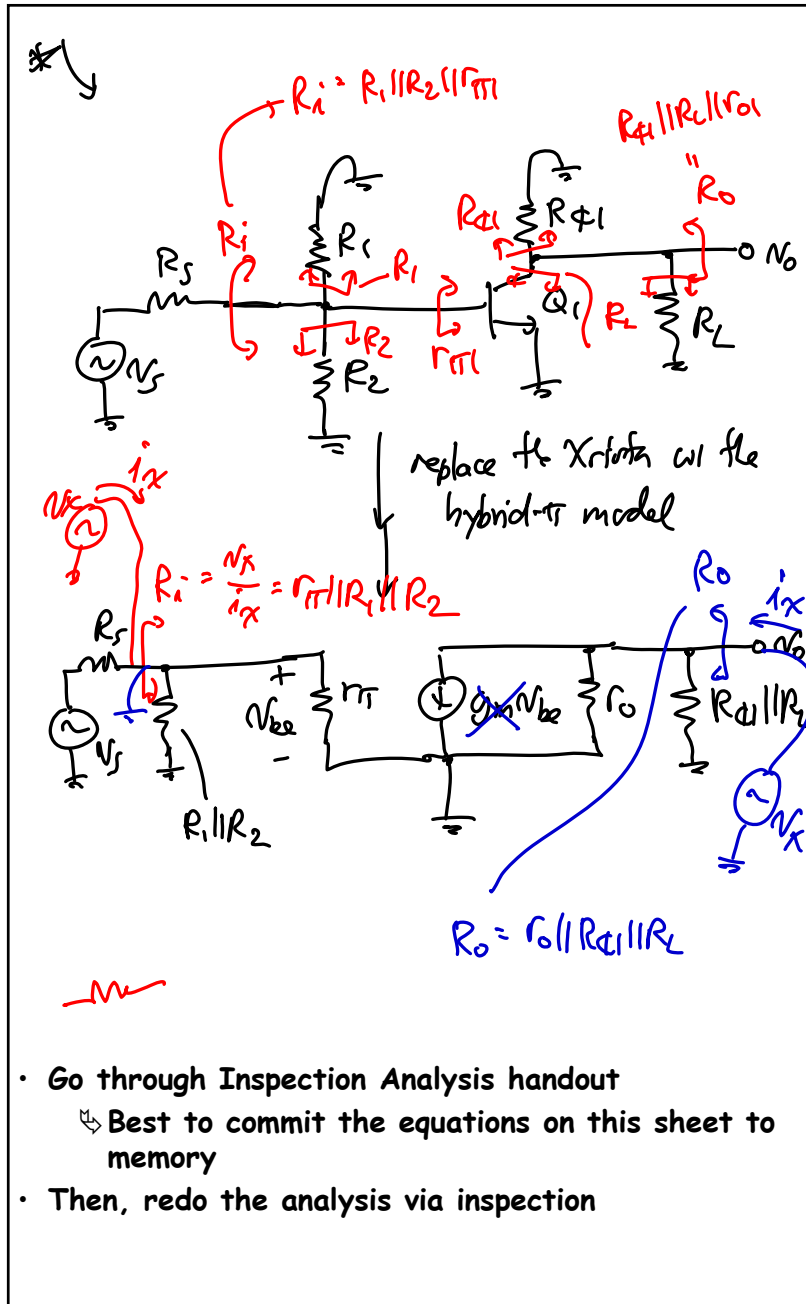 Ri = R1||R2||rπ1
RC1||RL||ro1
"
Ro
RC1
RC1
Ri
R1
R1
vo
Rs
Q1
RL
RL
R2
rπ1
R2
vs
replace the Xristor w/ the
hybrid-π model
ix
vx
Ri = vx/ix = rπ||R1||R2
Ro
ix
Rs
vo
+
vbe
-
rπ
gm vbe
ro
RC1||RL
vs
R1||R2
vx
Ro = ro||RC1||RL
• Go through Inspection Analysis handout
Best to commit the equations on this sheet to
memory
• Then, redo the analysis via inspection